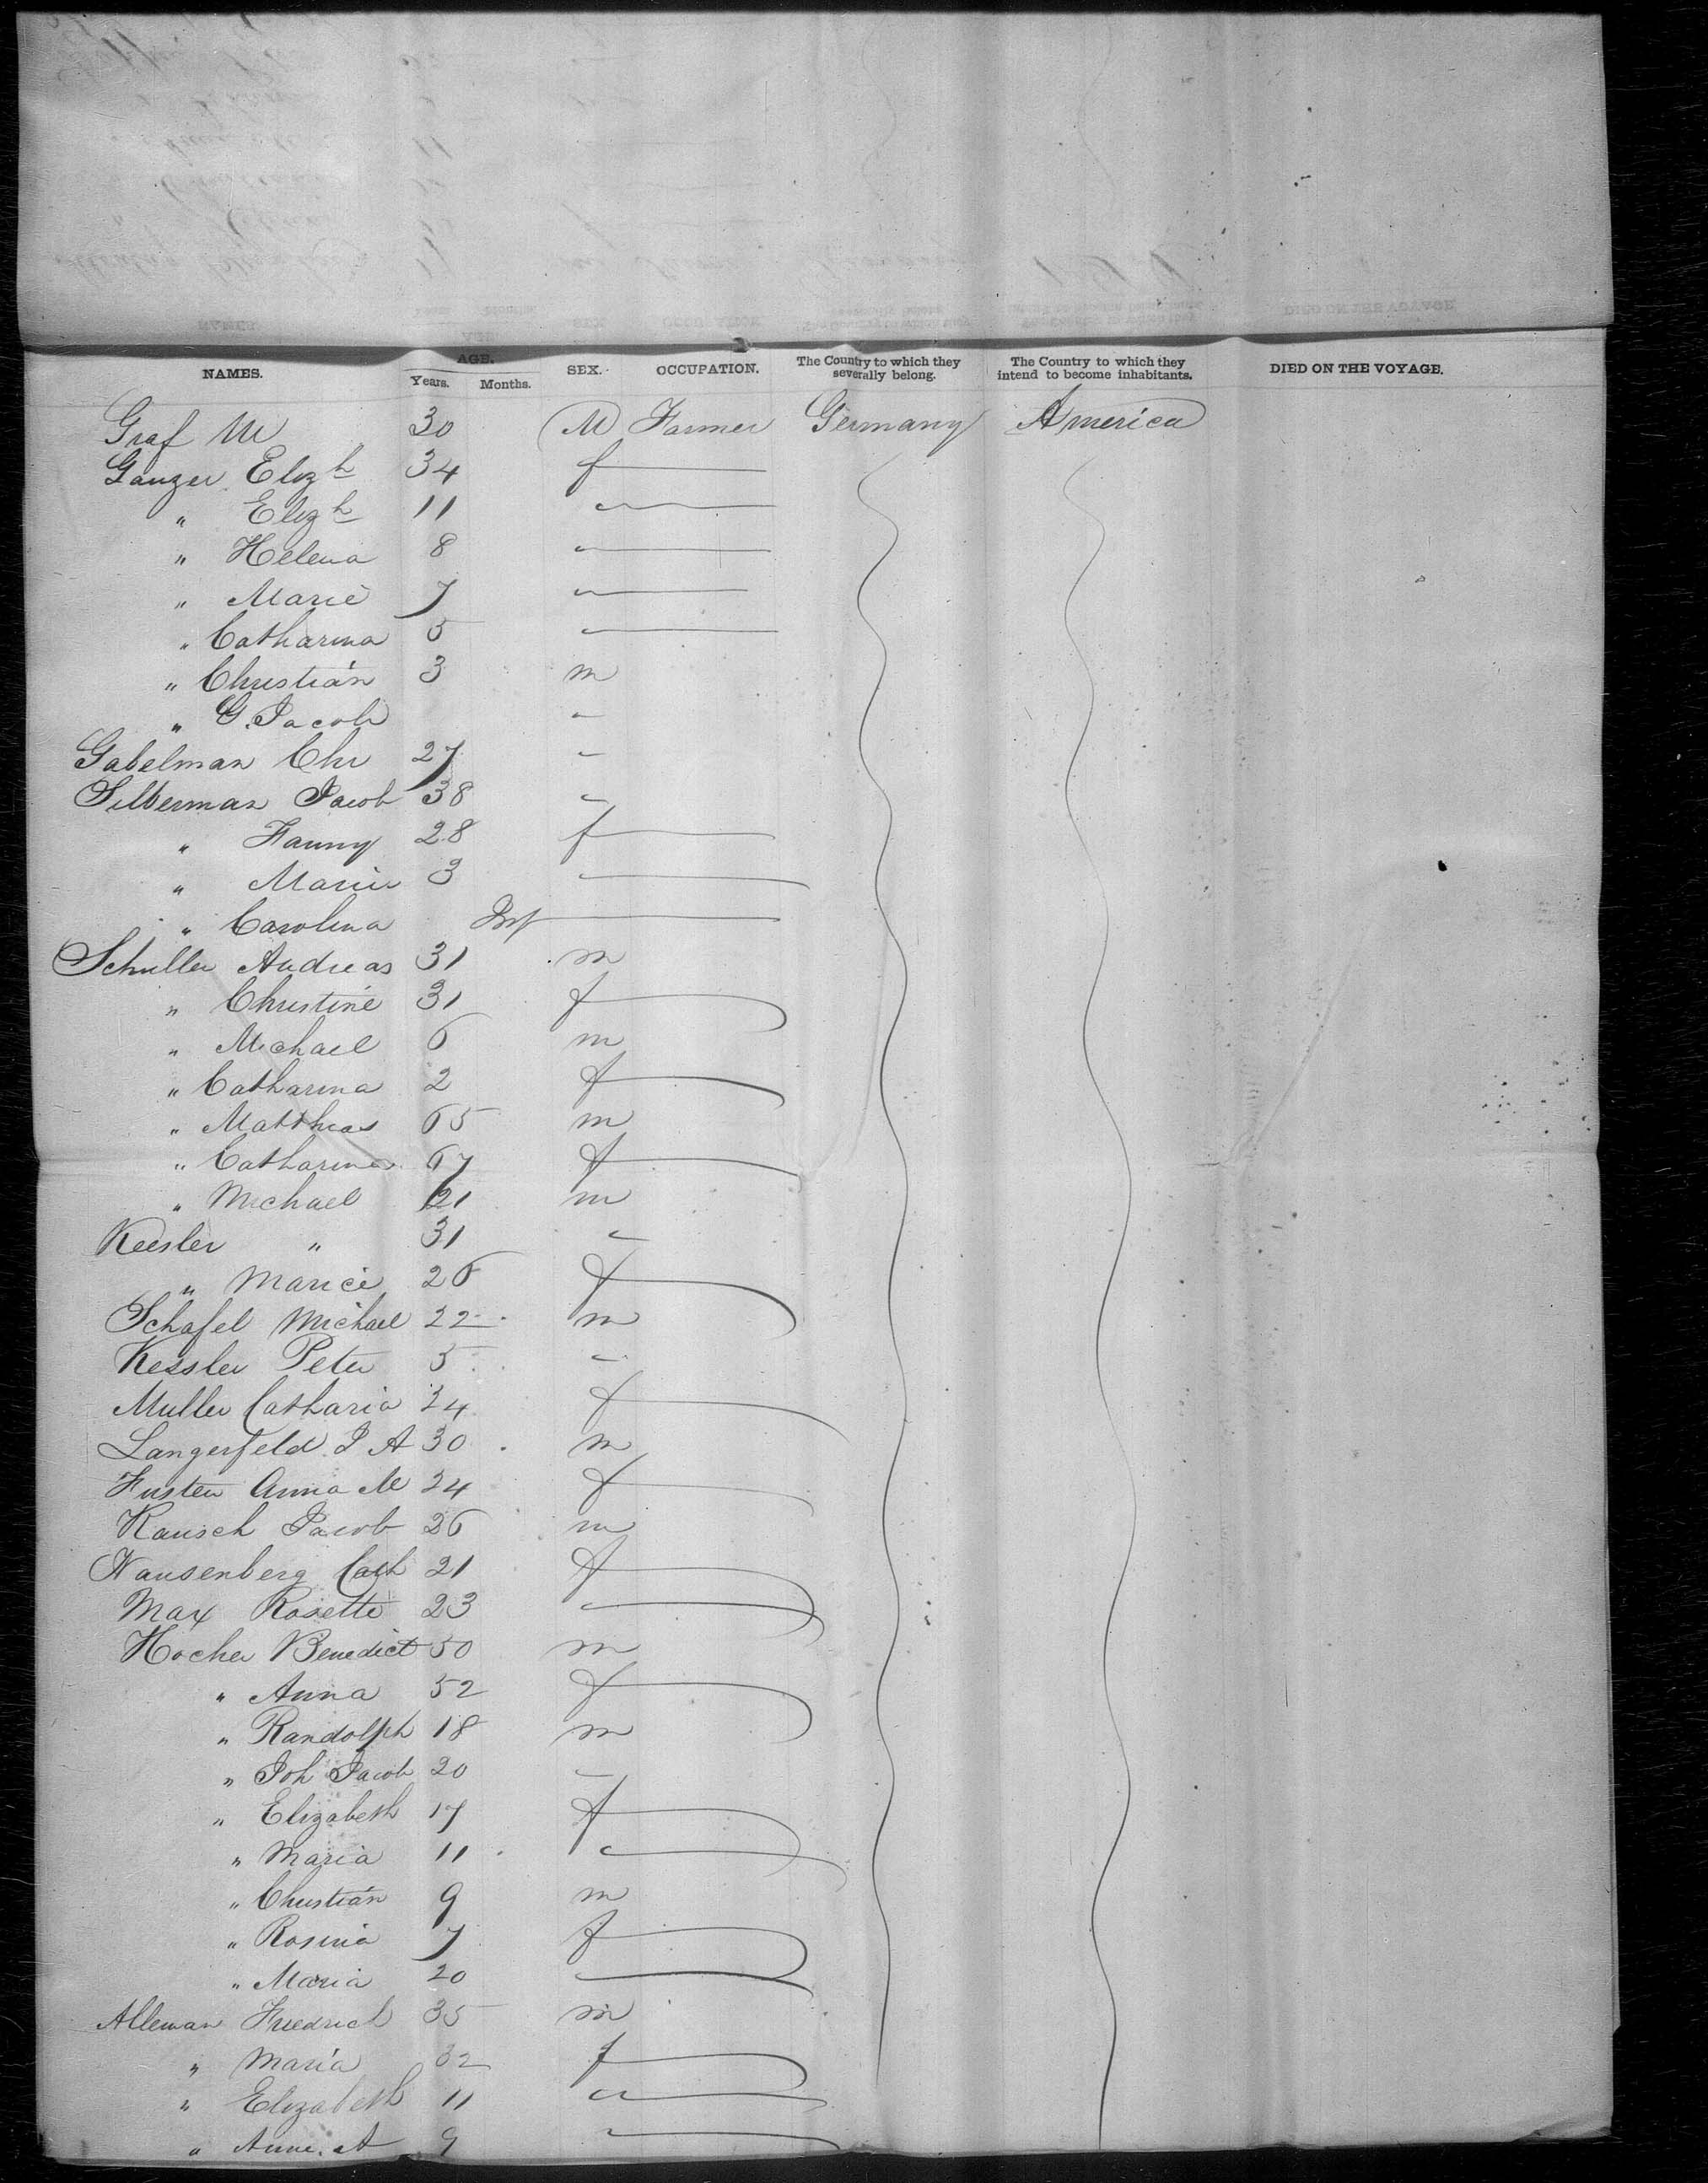 NAMES. AGE. Years. Months. SEX. OCCUPATION. The Country to which they severally belong. The Country to which they intend to become inhabitants. DIED ON THE VOYAGE.
Graf M 30 M Farmer Germany America
Ganzer Elizh 34 f
" Elizh 11 "
" Helena 8 "
" Marie 7 "
" Catharina 5 "
" Christian 3 m
" G. Jacob "
Gabelman Chr 27 "
Silberman Jacob 38 "
" Fanny 28 f
" Marie 3 "
" Carolina Inf
Schuller Andreas 31 m
" Christine 31 f
" Michael 6 m
" Catharina 2 f
" Matthias 65 m
" Catharina 67 f
" Michael 21 m
Keesler " 31 "
" Marice 26 f
Schafel Michael 22 m
Kessler Peter 5 "
Muller Catharia 24 f
Langerfeld J A 30 m
Fusten Anna M 24 f
Rausch Jacob 26 m
Wausenberg Cath 21 f
Max Rosette 23 "
Hocher Benedict 50 m
" Anna 52 f
" Randolph 18 m
" Joh Jacob 20 "
" Elizabeth 17 f
" Maria 11 "
" Christian 9 m
" Rosina 7 f
" Maria 20 "
Alleman Friedrich 35 m
" Maria 32 f
" Elizabeth 11 "
" Anne. A 9 "